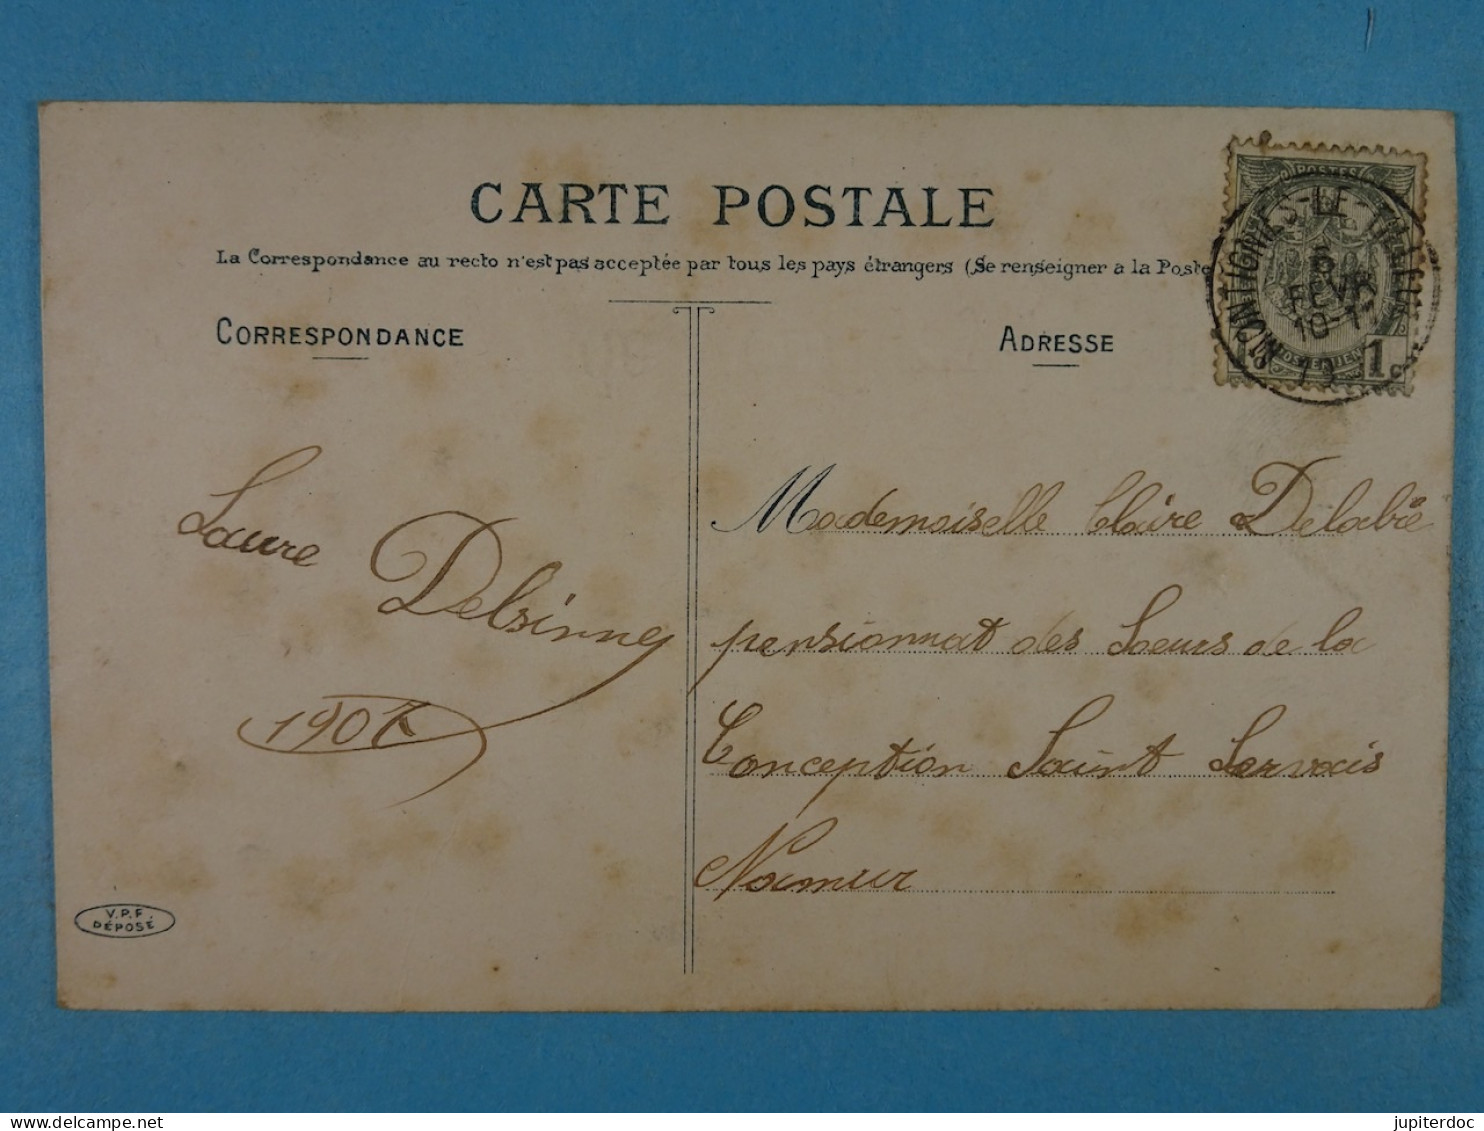 CARTE POSTALE
La Correspondance au recto n'est pas acceptée par tous les pays étrangers (Se renseigner a la Poste
CORRESPONDANCE
ADRESSE
POSTES
MONTIGNIES-LE-TILLEUL
5
FEVR
10-11
1c
Laure
Delsinney
1907
Mademoiselle Claire Delabie
pensionnat des Soeurs de la
Conception Saint Servais
Namur
V.P.F.
DÉPOSÉ
jupiterdoc